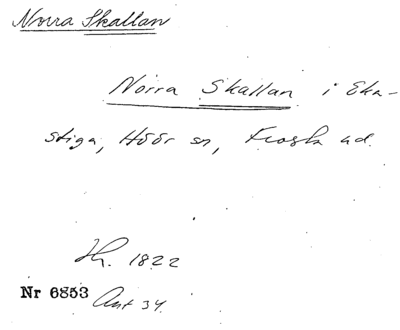 Norra Skallan
Norra Skallan i Eka-
stiga, Höör sn, Frosta hd.
Hr. 1822
Nr 6853 Ant 34.